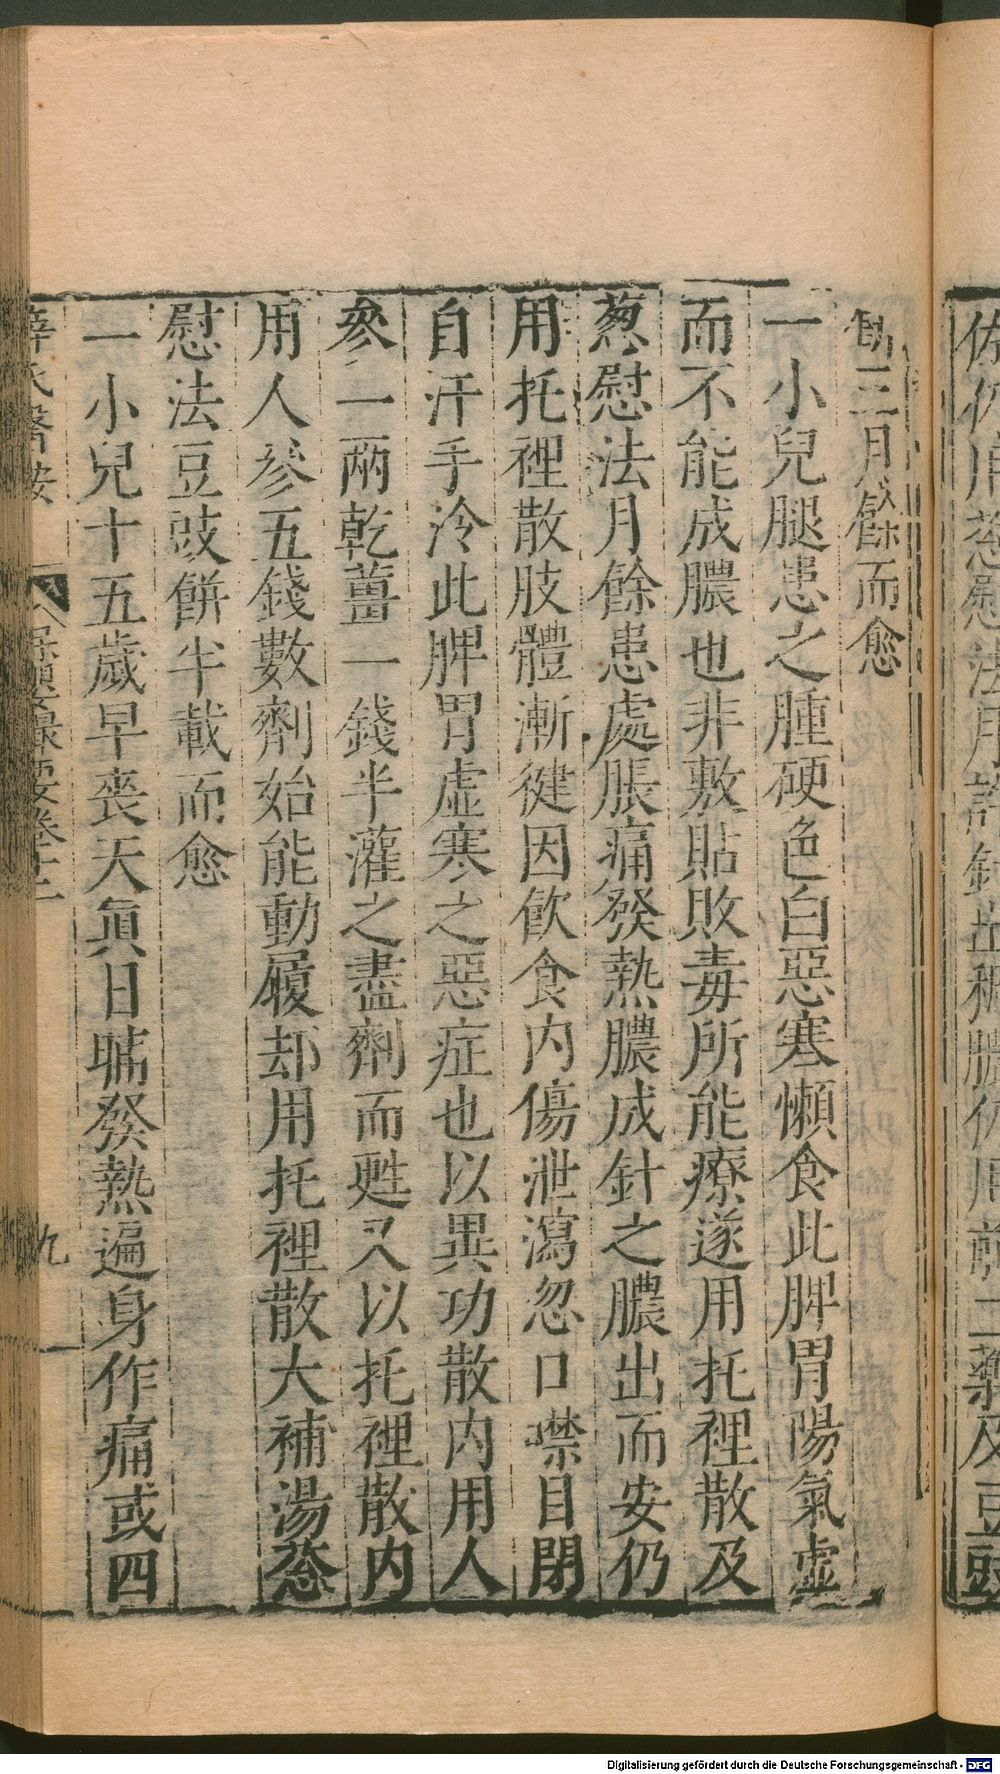 餅三月餘而愈
一小兒腿患之腫硬色白惡寒懶食此脾胃陽氣虛
而不能成膿也非敷貼敗毒所能療遂用托裡散及
葱慰法月餘患處脹痛發熱膿成針之膿出而安仍
用托裡散肢體漸健因飲食内傷泄瀉忽口噤目閉
自汗手冷此脾胃虛寒之惡症也以異功散内用人
參一兩乾薑一錢半灌之盡劑而甦又以托裡散内
用人參五錢數劑始能動履却用托裡散大補湯葱
慰法豆豉餅半載而愈
一小兒十五歲早喪天眞日晡發熱遍身作痛或四
薛氏醫按
保嬰撮要卷十二
九
Digitalisierung gefördert durch die Deutsche Forschungsgemeinschaft - DFG